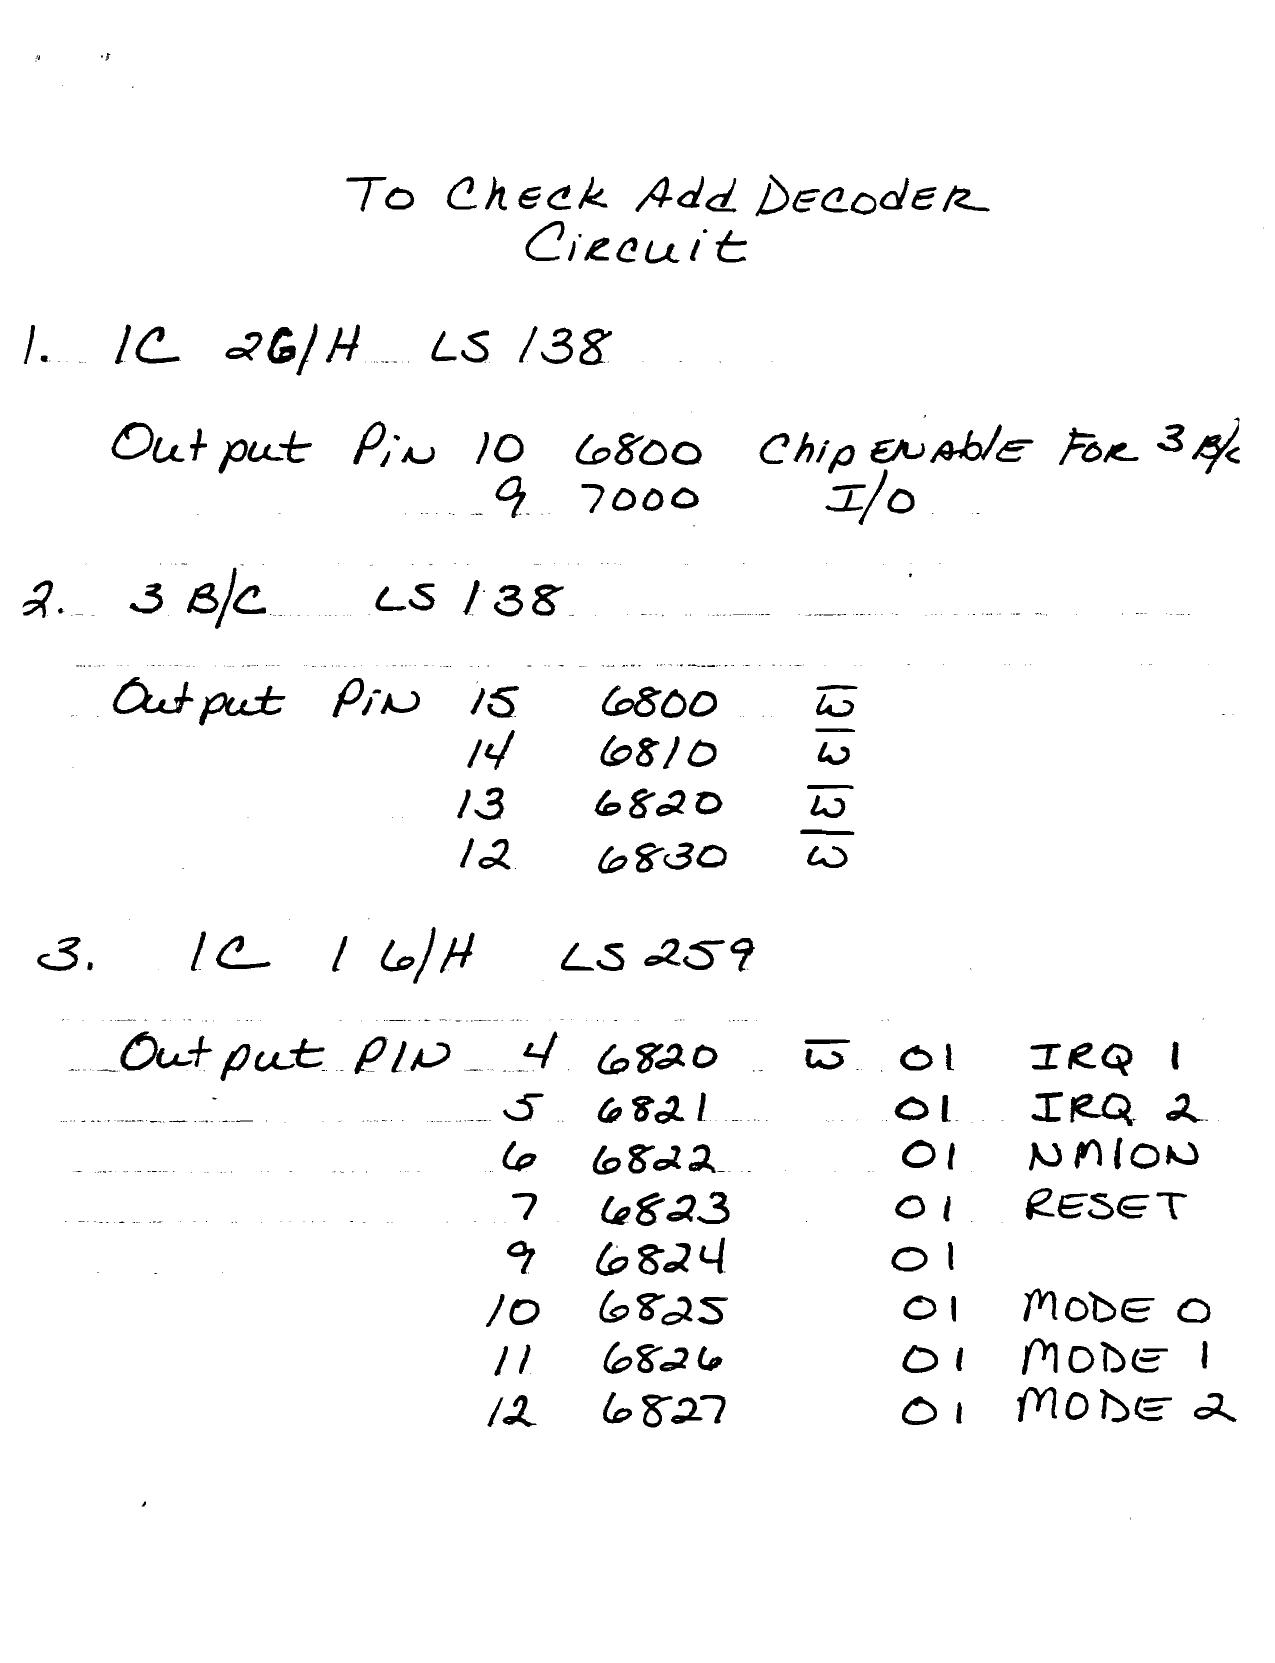 To Check Add DECODER
Circuit
1. IC 2G/H LS 138
Output Pin 10 6800 Chip ENAblE FOR 3 B/C
9 7000 I/O
2. 3 B/C LS 138
Output Pin 15 6800 W̅
14 6810 W̅
13 6820 W̅
12 6830 W̅
3. IC 1 G/H LS 259
Output PIN 4 6820 W̅ 01 IRQ 1
5 6821 01 IRQ 2
6 6822 01 NMION
7 6823 01 RESET
9 6824 01
10 6825 01 MODE 0
11 6826 01 MODE 1
12 6827 01 MODE 2